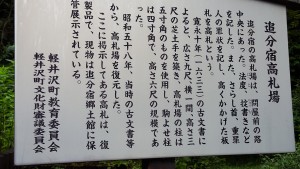 追分宿高札場
追分宿の高札場は、問屋前の路
中央にあった。法度、掟書きなど
を記した。また、さらし首、重罪
人の罪状を記し、高くかかげた板
札を高札という。
寛永十年(一六三三)の古文書に
よると、広さ六尺、横一間、高さ三
尺の芝土手を築き、高札場の柱は
五寸角のものを使用し、駒よせ柱
は四寸角で、高さ六尺の規模であ
った。
昭和五十八年、当時の古文書等
から、高札場を復元した。
ここに掲示してある高札は、復
元製品で、現物は追分宿郷土館に保
管展示されている。
軽井沢町教育委員会
軽井沢町文化財審議委員会